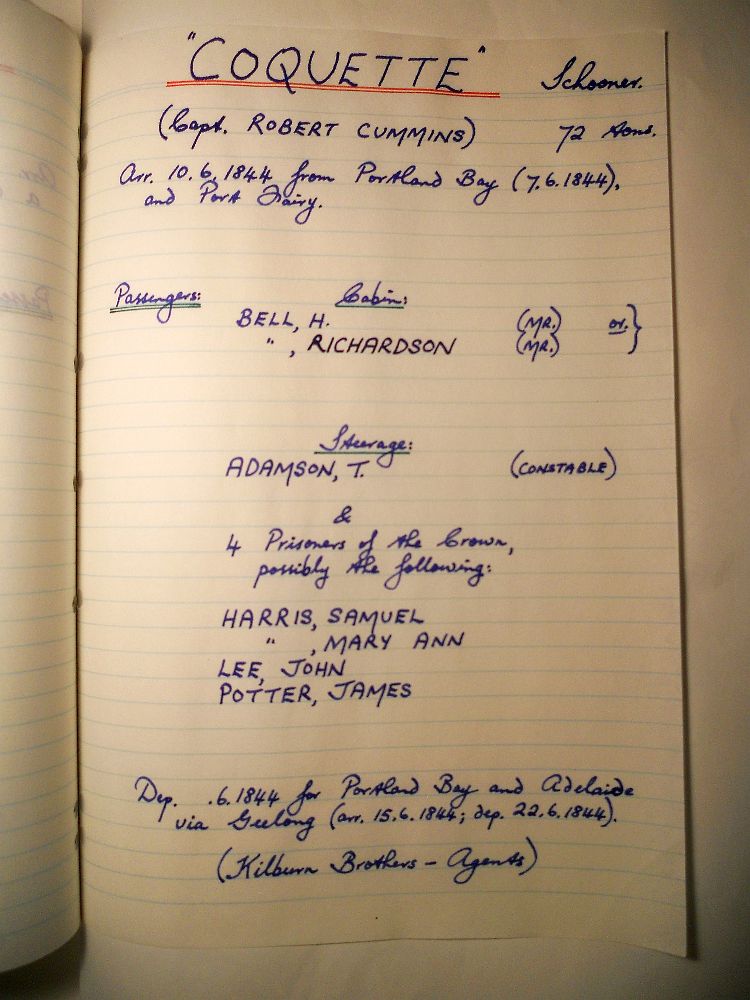 "COQUETTE" Schooner.
(Capt. ROBERT CUMMINS) 72 tons.
Arr. 10.6.1844 from Portland Bay (7.6.1844),
and Port Fairy.
Passengers: Cabin:
BELL, H. (MR.) or. }
" , RICHARDSON (MR.)
Steerage:
ADAMSON, T. (CONSTABLE)
&
4 Prisoners of the Crown,
possibly the following:
HARRIS, SAMUEL
" , MARY ANN
LEE, JOHN
POTTER, JAMES
Dep. .6.1844 for Portland Bay and Adelaide
via Geelong (arr. 15.6.1844; dep. 22.6.1844).
(Kilburn Brothers - Agents)